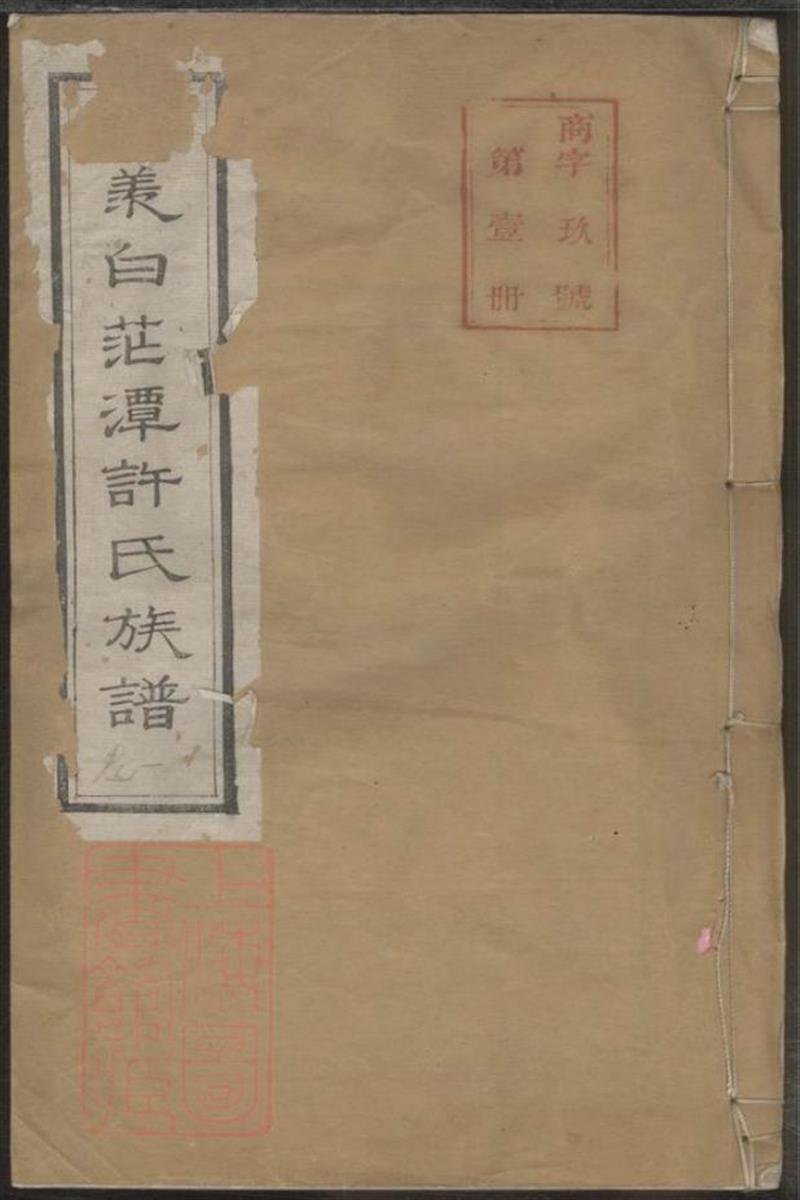 商字玖號
第壹冊
羕白茫潭許氏族譜
卷一
上海圖
書館藏